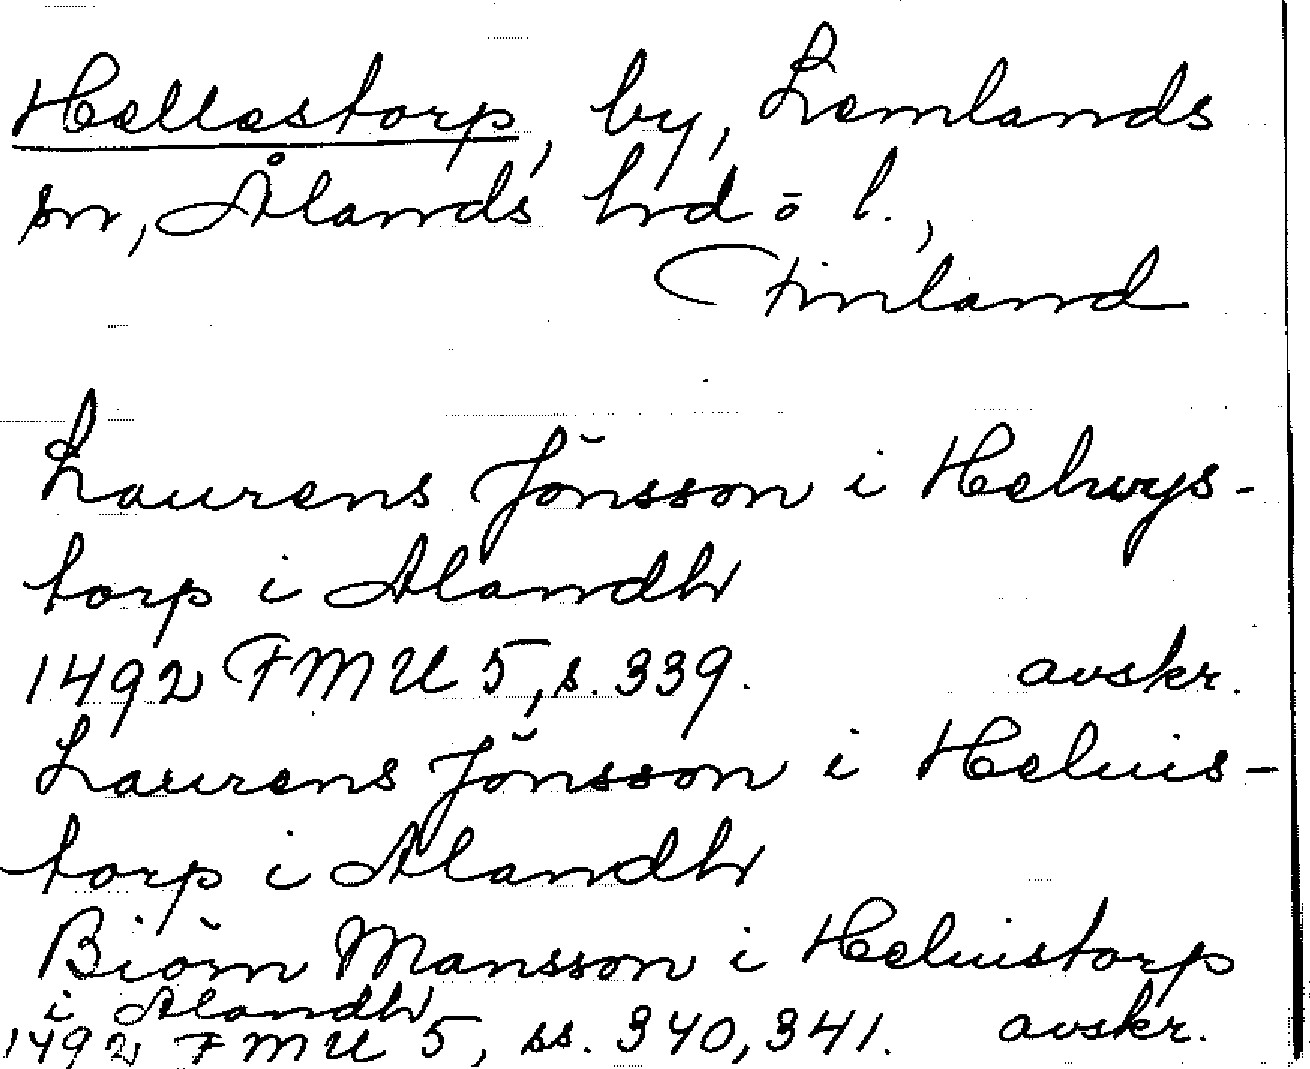 Hellestorp, by, Lemlands
sn, Ålands hrd o l.,
Finland
Laurens Jönsson i Helwys-
torp i Alandh
1492 FMU 5, s. 339. avskr.
Laurens Jönsson i Heluis-
torp i Alandh
Biörn Mansson i Heluistorp
i Alandh
1492 FMU 5, ss. 340, 341. avskr.